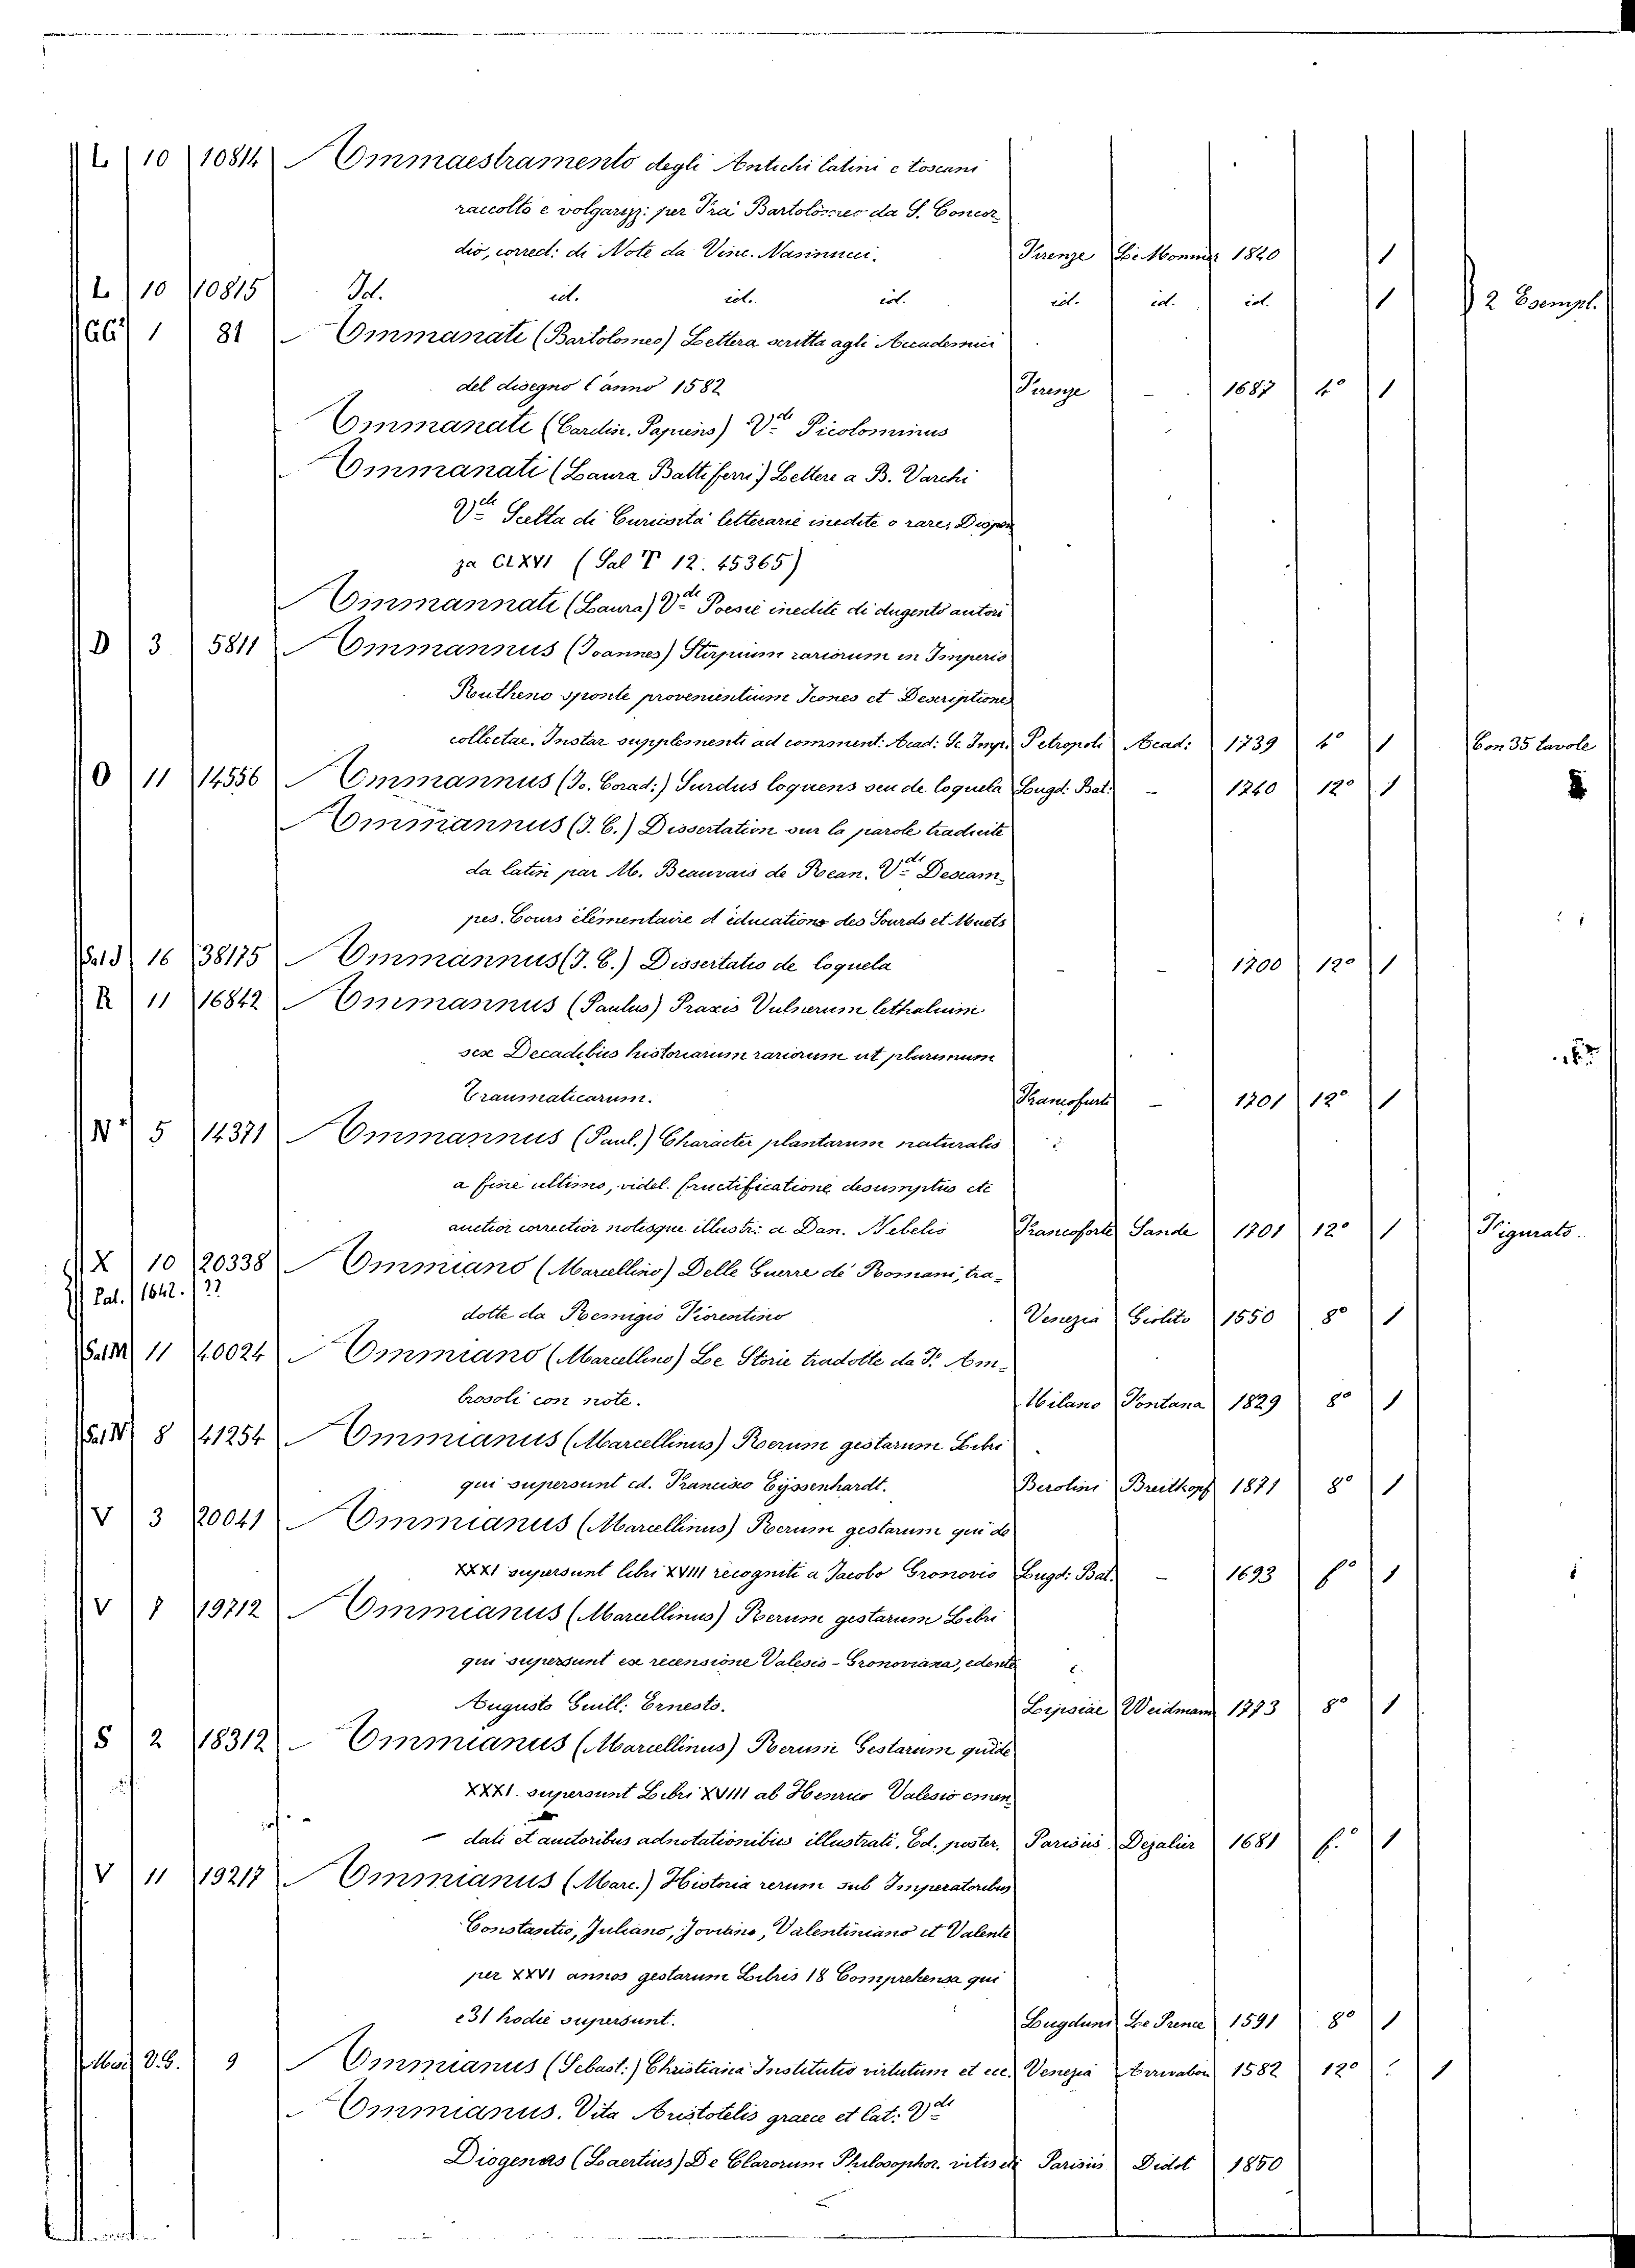 L 10 10814 Ammaestramento degli Antichi latini e toscani
raccolto e volgarizz: per Fra Bartolomeo da S. Concor
dio, correct: di Note da Vinc. Nannucci. Firenze Le Monnier 1840 1
L 10 10815 Id. id. id. id. id. id. id. 1 2 Esempl.
GG² 1 81 Ammanati (Bartolomeo) Lettera scritta agli Accademici
del disegno l'anno 1582 Firenze - 1687 4° 1
Ammanati (Cardin. Papiens) Vde Picolominus
Ammanati (Laura Battiferri) Lettere a B. Varchi
Vde Scelta di Curiosità letterarie inedite o rare, Dispen
za CLXVI (Sal T 12. 45365)
Ammannati (Laura) Vde Poesie inedite di dugento autori
D 3 5811 Ammannus (Joannes) Stirpium rariorum in Imperio
Rutheno sponte provenientium Icones et Descriptiones
collectae. Instar supplementi ad comment: Acad: Sc. Imp. Petropoli Acad: 1739 4° 1 Con 35 tavole
O 11 14556 Ammannus (Jo. Corad:) Surdus loquens seu de loquela Lugd: Bat: - 1740 12° 1
Ammannus (J. C.) Dissertation sur la parole traduite
da latin par M. Beauvais de Prean. Vde Descam-
pes. Cours élémentaire d'éducations des Sourds et Muets
Sal J 16 38175 Ammannus (J. C.) Dissertatio de loquela - - 1700 12° 1
R 11 16842 Ammannus (Paulus) Praxis Vulnerum lethalium
sex Decadibus historiarum rariorum ut plurimum
Traumaticarum. Francofurti - 1701 12° 1
N² 5 14371 Ammannus (Paul.) Character plantarum naturalis
a fine ultimo, videl. fructificatione desumptus etc
auctior correctior notisque illustr: a Dan. Nebelio Francoforte Sande 1701 12° 1 Figurato.
X 10 20338 Ammiano (Marcellino) Delle Guerre de Romani, tra-
Pal. 1642. 22
dotte da Remigio Fiorentino Venezia Giolito 1550 8° 1
Sal M 11 40024 Ammiano (Marcellino) Le Storie tradotte da F. Am-
brosoli con note. Milano Fontana 1829 8° 1
Sal N 8 41254 Ammianus (Marcellinus) Rerum gestarum Libri
qui supersunt ed. Francisco Eyssenhardt. Berolini Breitkopf 1871 8° 1
V 3 20041 Ammianus (Marcellinus) Rerum gestarum qui de
XXXI supersunt libri XVIII recogniti a Jacobo Gronovio Lugd: Bat. - 1693 f° 1
V 7 19712 Ammianus (Marcellinus) Rerum gestarum Libri
qui supersunt ex recensione Valesio-Gronoviana, edente
Augusto Guill: Ernesto. Lipsiae Weidmann 1773 8° 1
S 2 18312 Ammianus (Marcellinus) Rerum Gestarum qui de
XXXI. supersunt Libri XVIII ab Henrico Valesio emen
dati et auctoribus adnotationibus illustrati. Ed. poster. Parisiis Dezalier 1681 f.° 1
V 11 19217 Ammianus (Marc.) Historia rerum sub Imperatoribus
Constantio, Juliano, Joviano, Valentiniano et Valente
per XXVI annos gestarum Libris 18 Comprehensa qui
e 31 hodie supersunt. Lugduni Le Preux 1591 8° 1
V.S. 9 Ammianus (Sebast:) Christiana Institutio virtutum et ecc. Venezia Arrivabon 1582 12° 1
Ammianus. Vita Aristotelis graece et lat: Vde
Diogenes (Laertius) De Clarorum Philosophor. vitis etc Parisiis Didot 1850